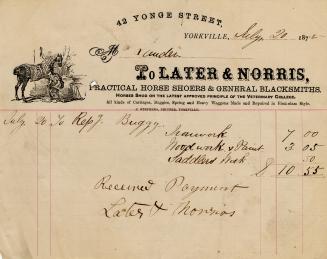 42 YONGE STREET,
YORKVILLE, July 20 187
M
To LATER & NORRIS,
PRACTICAL HORSE SHOERS & GENERAL BLACKSMITHS.
HORSES SHOD ON THE LATEST APPROVED PRINCIPLE OF THE VETERINARY COLLEGE.
All kinds of Carriages, Buggies, Spring and Heavy Waggons Made and Repaired in First-class Style.
July 20 To Rep g Buggy
Ironwork 7 00
Woodwork & Paint 3 05
Saddlers Work 50
$ 10 55
Received Payment
Later & Norris